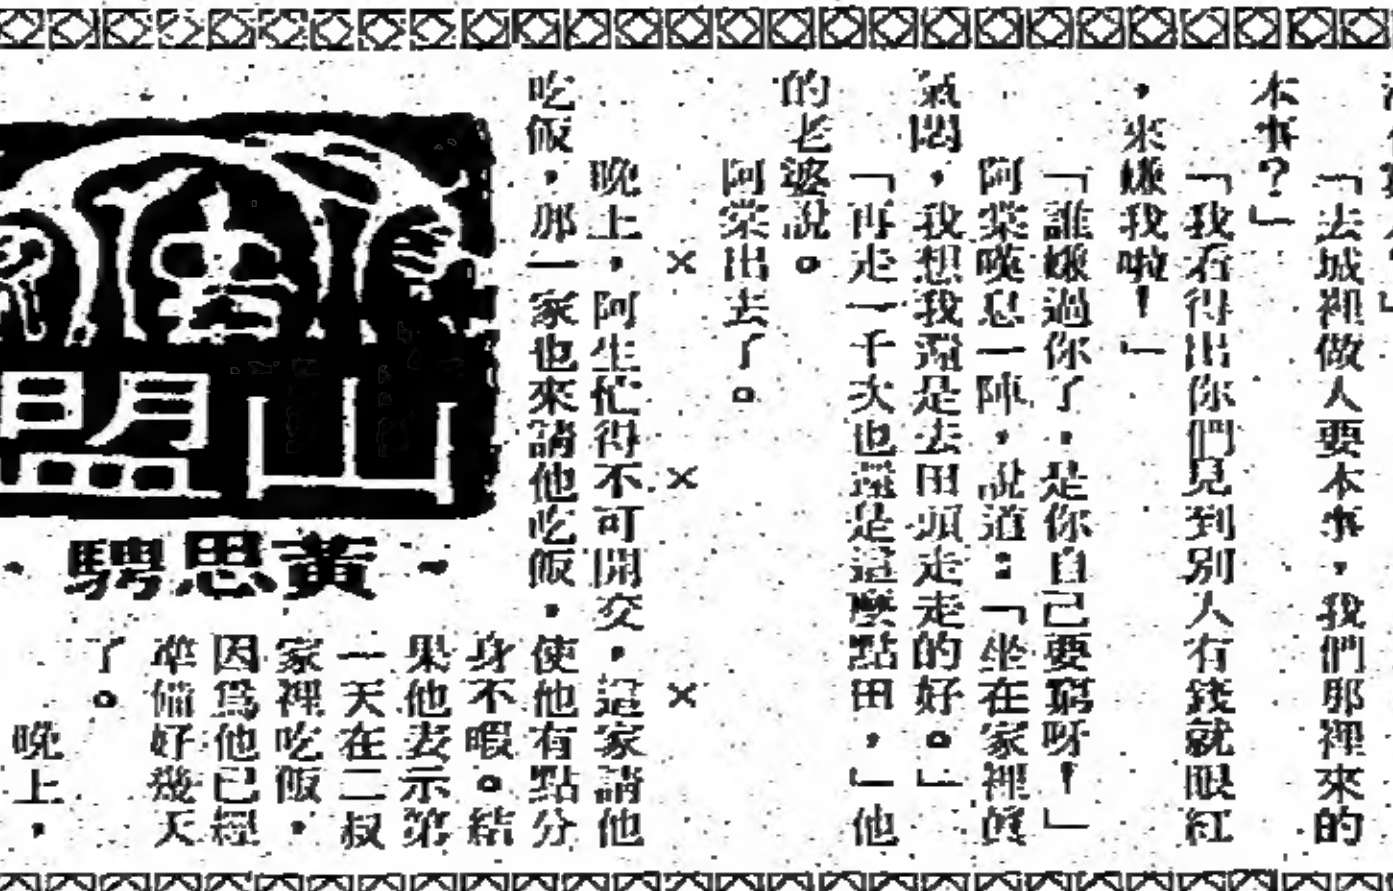 「去城裡做人要本事，我們那裡來的
本事？」
「我看得出你們見到別人有錢就眼紅
，來嫌我啦！」
「誰嫌過你了，是你自己要窮呀！」
阿棠嘆息一陣，說道：「坐在家裡眞
氣悶，我想我還是去田頭走走的好。」
「再走一千次也還是這麼點田，」他
的老婆說。
阿棠出去了。
× × ×
晚上，阿生忙得不可開交，這家請他
吃飯，那一家也來請他吃飯，使他有點分
身不暇。結
果他表示第
一天在二叔
家裡吃飯，
因爲他已經
準備好幾天
了。
晚上，
山盟
·黃思騁·